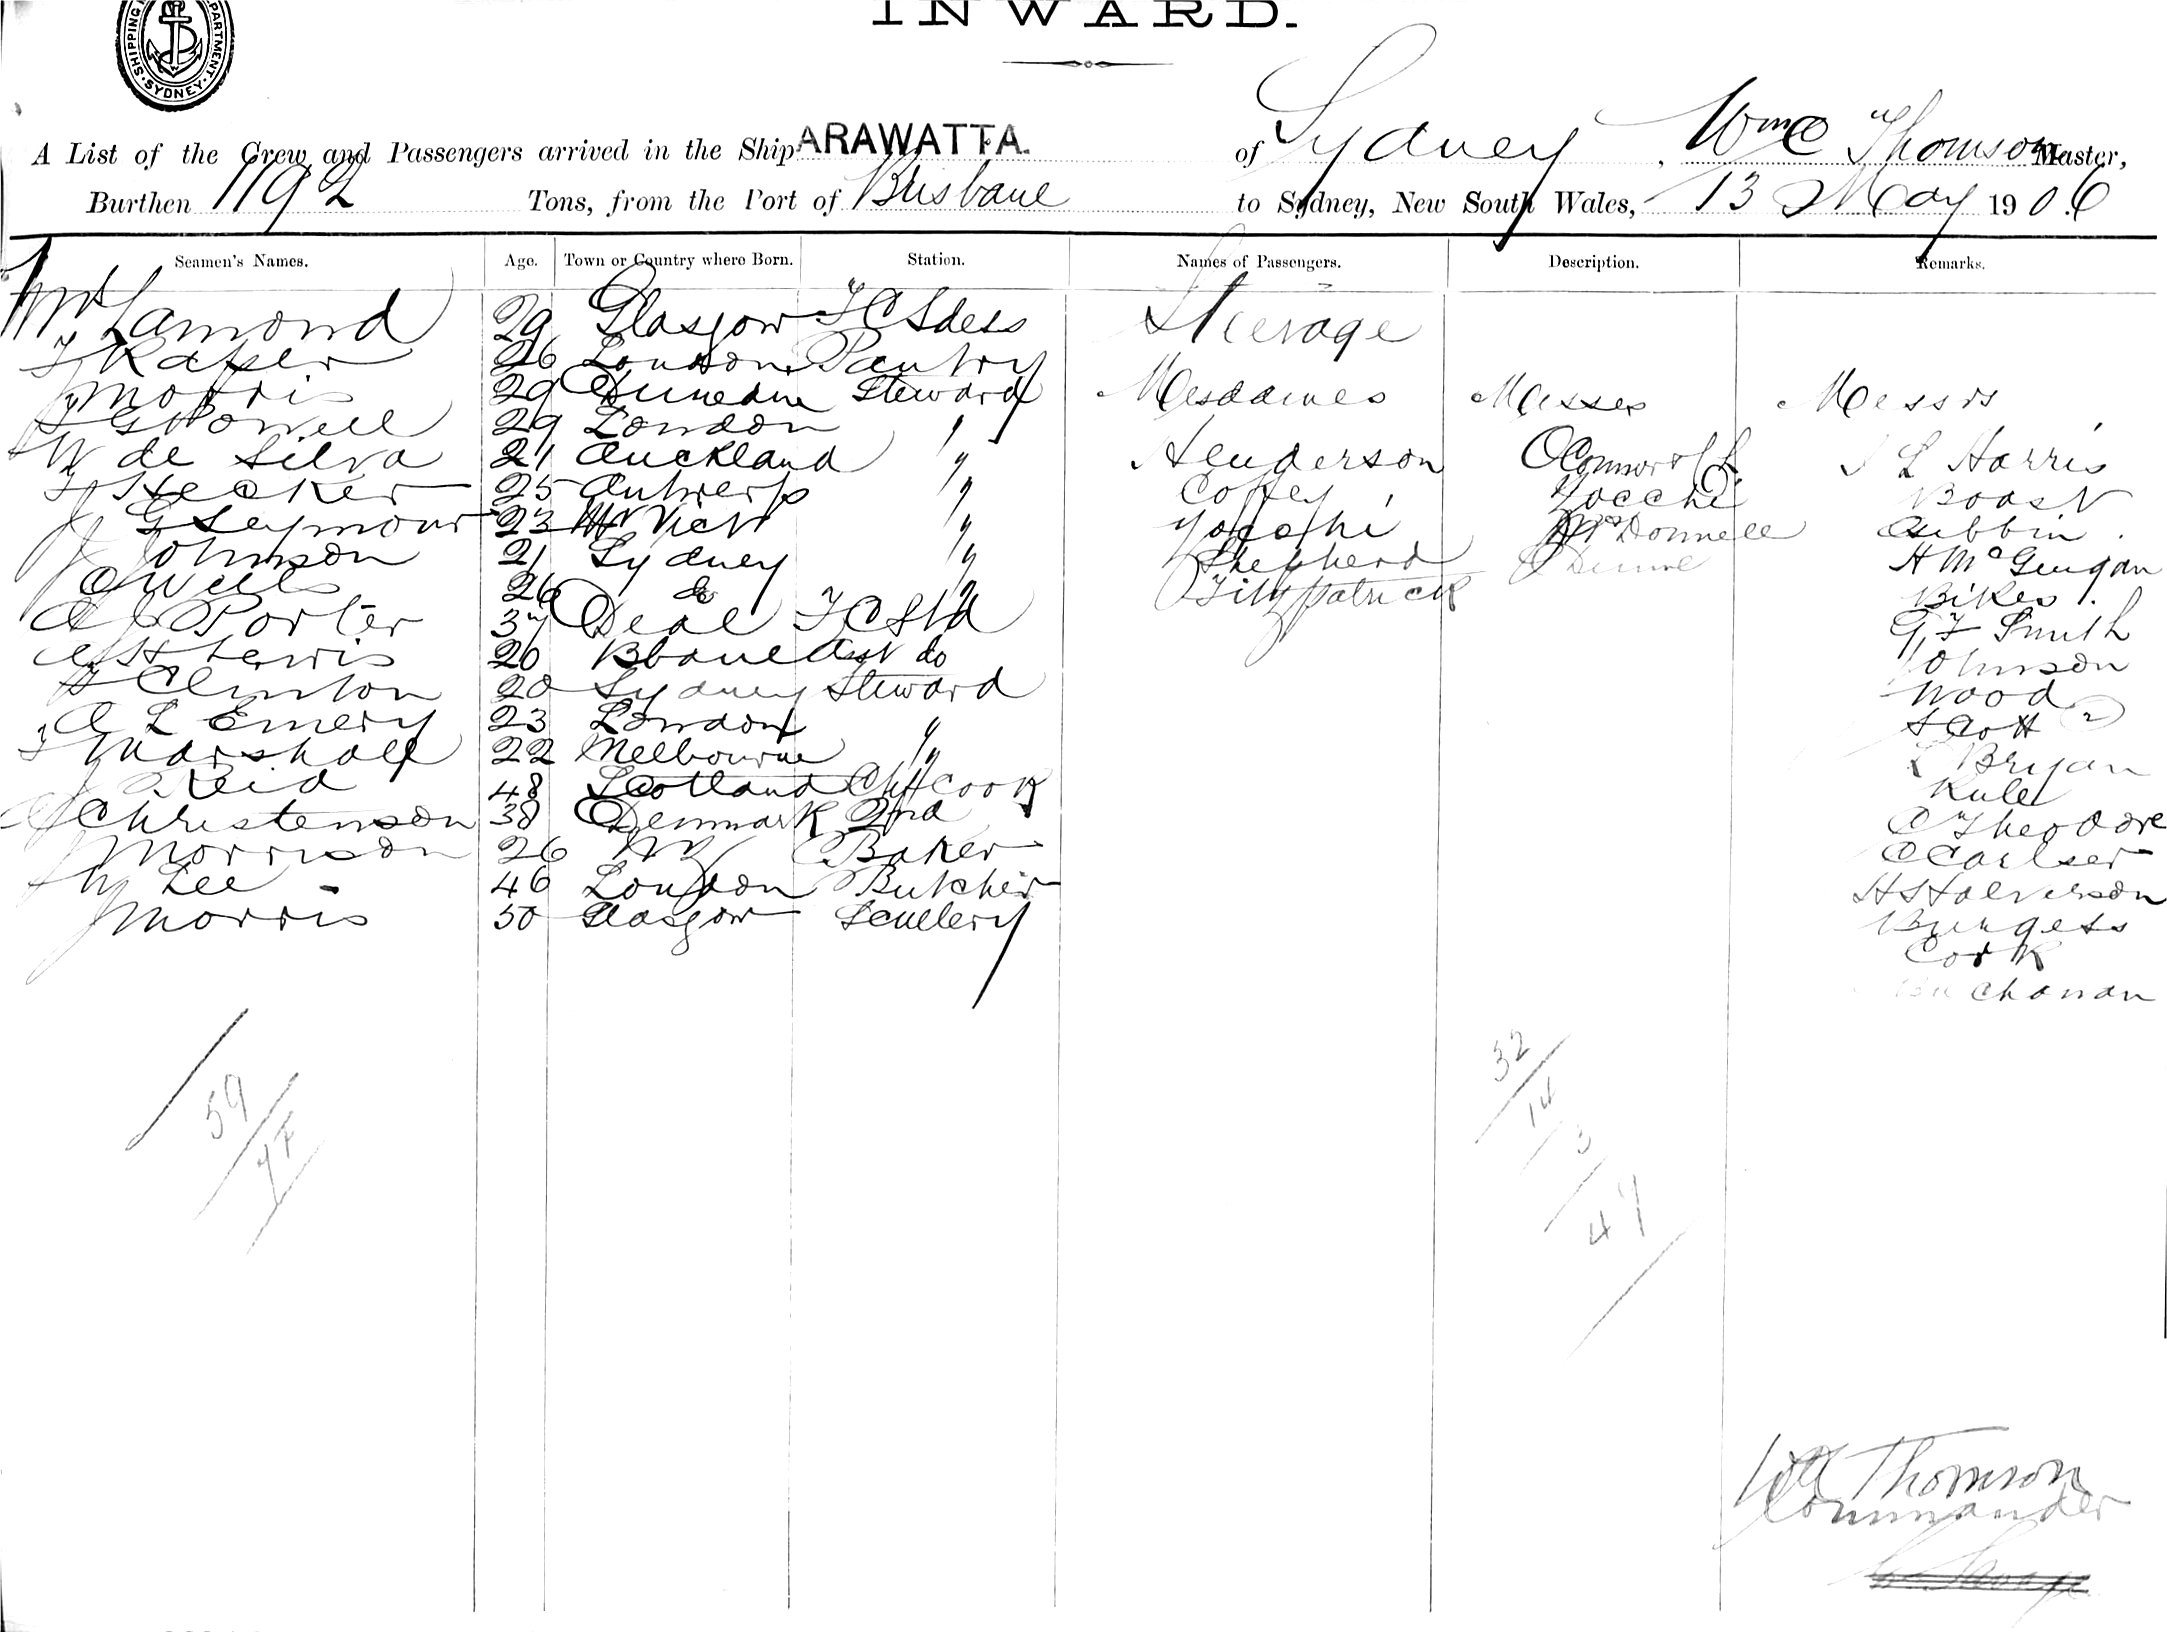 INWARD.
SHIPPING DEPARTMENT SYDNEY
A List of the Crew and Passengers arrived in the Ship ARAWATTA. of Sydney, Wm C Thomson Master,
Burthen 1192 Tons, from the Port of Brisbane to Sydney, New South Wales, 13 May 1906
Seamen's Names. Age. Town or Country where Born. Station. Names of Passengers. Description. Remarks.
Mrs Lamond 29 Glasgow F C Sdess Steerage
F Raper 26 London Pantry
J Morris 29 Dunedin Steward Mesdames Misses Messrs
S G Powell 29 London "
W de Silva 21 Auckland " Henderson OConnor (2 J L Harris
F Hecker 25 Antwerp " Coffey Yocchi Boast
J G Seymour 23 W Vict " Yocchi McDonnell Cubbin
J Johnson 21 Sydney " Shepherd Dunne H McGuigan
C Wells 26 do " Fitzpatrick Bikes
A J Porter 37 Deal F C Std G F Smith
A H Lewis 20 Bbane Asst do Johnson
H Clinton 20 Sydney Steward Wood
A L Emery 23 London " Scott (2)
F Marshall 22 Melbourne " L Bryan
J Reid 48 Scotland Chf Cook Rule
C Christenson 38 Denmark 2nd " C Theodore
J Morrison 26 NZ Baker C Carlsen
W Lee 46 London Butcher H S Halverson
J Morris 50 Glasgow Scullery Burgess
Cork
Buchanan
59
32
14
3
47
Wm Thomson
Commander